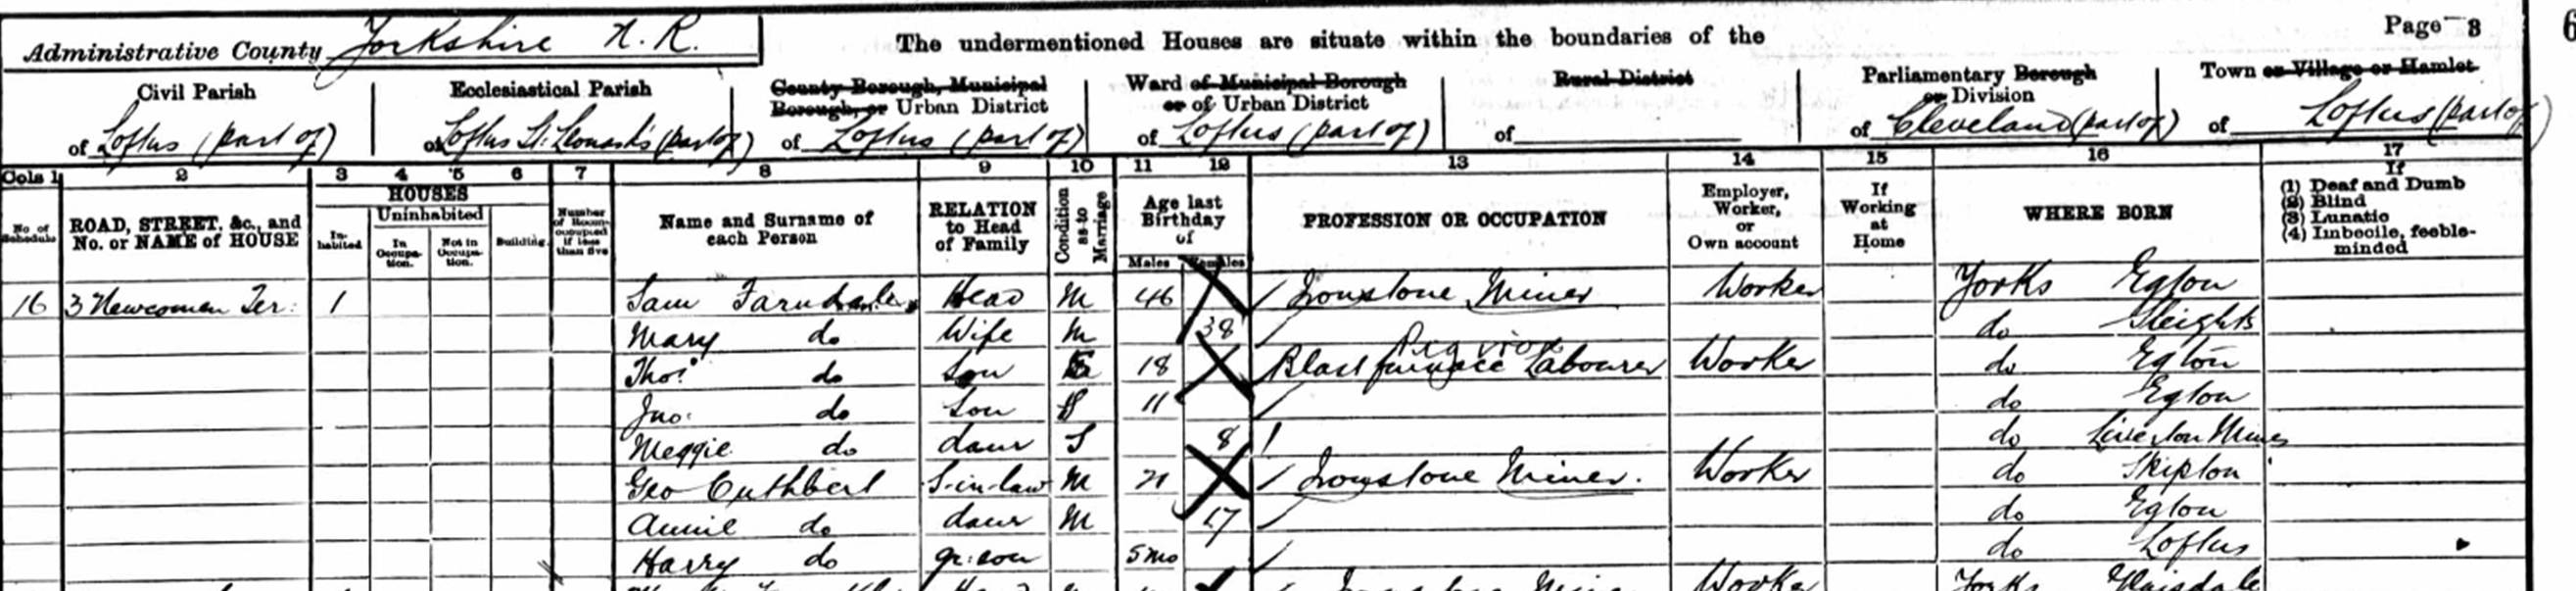 Administrative County Yorkshire N. R.
The undermentioned Houses are situate within the boundaries of the
Page 3
6
Civil Parish
of Loftus (part of)
Ecclesiastical Parish
of Loftus St. Leonards (part of)
County Borough, Municipal
Borough, or Urban District
of Loftus (part of)
Ward of Municipal Borough
or of Urban District
of Loftus (part of)
Rural District
of
Parliamentary Borough
or Division
of Cleveland (part of)
Town or Village or Hamlet
of Loftus (part of)
Cols 1 2 3 4 5 6 7 8 9 10 11 12 13 14 15 16 17
No of Schedule
ROAD, STREET, &c., and
No. or NAME of HOUSE
HOUSES
Inhabited
Uninhabited
In Occupation.
Not in Occupation.
Building
Number of Rooms occupied if less than five
Name and Surname of
each Person
RELATION
to Head
of Family
Condition as to Marriage
Age last
Birthday
of
Males Females
PROFESSION OR OCCUPATION
Employer,
Worker,
or
Own account
If
Working
at
Home
WHERE BORN
If
(1) Deaf and Dumb
(2) Blind
(3) Lunatic
(4) Imbecile, feeble-
minded
16 3 Newcomen Ter. 1 Sam Head M 46 Ironstone Miner Worker Yorks Egton
Mary do Wife M 38 do Sleights
Pig iron
Thos do Son 18 Blast furnace Labourer Worker do Egton
Jno. do Son S 11 do Egton
Meggie do daur S 8 do Liverton Mines
Geo Cuthbert S-in-law M 21 Ironstone Miner. Worker do Skipton
Annie do daur M 17 do Egton
Harry do gr: son 5 mo do Loftus
Worker Yorks Glaisdale